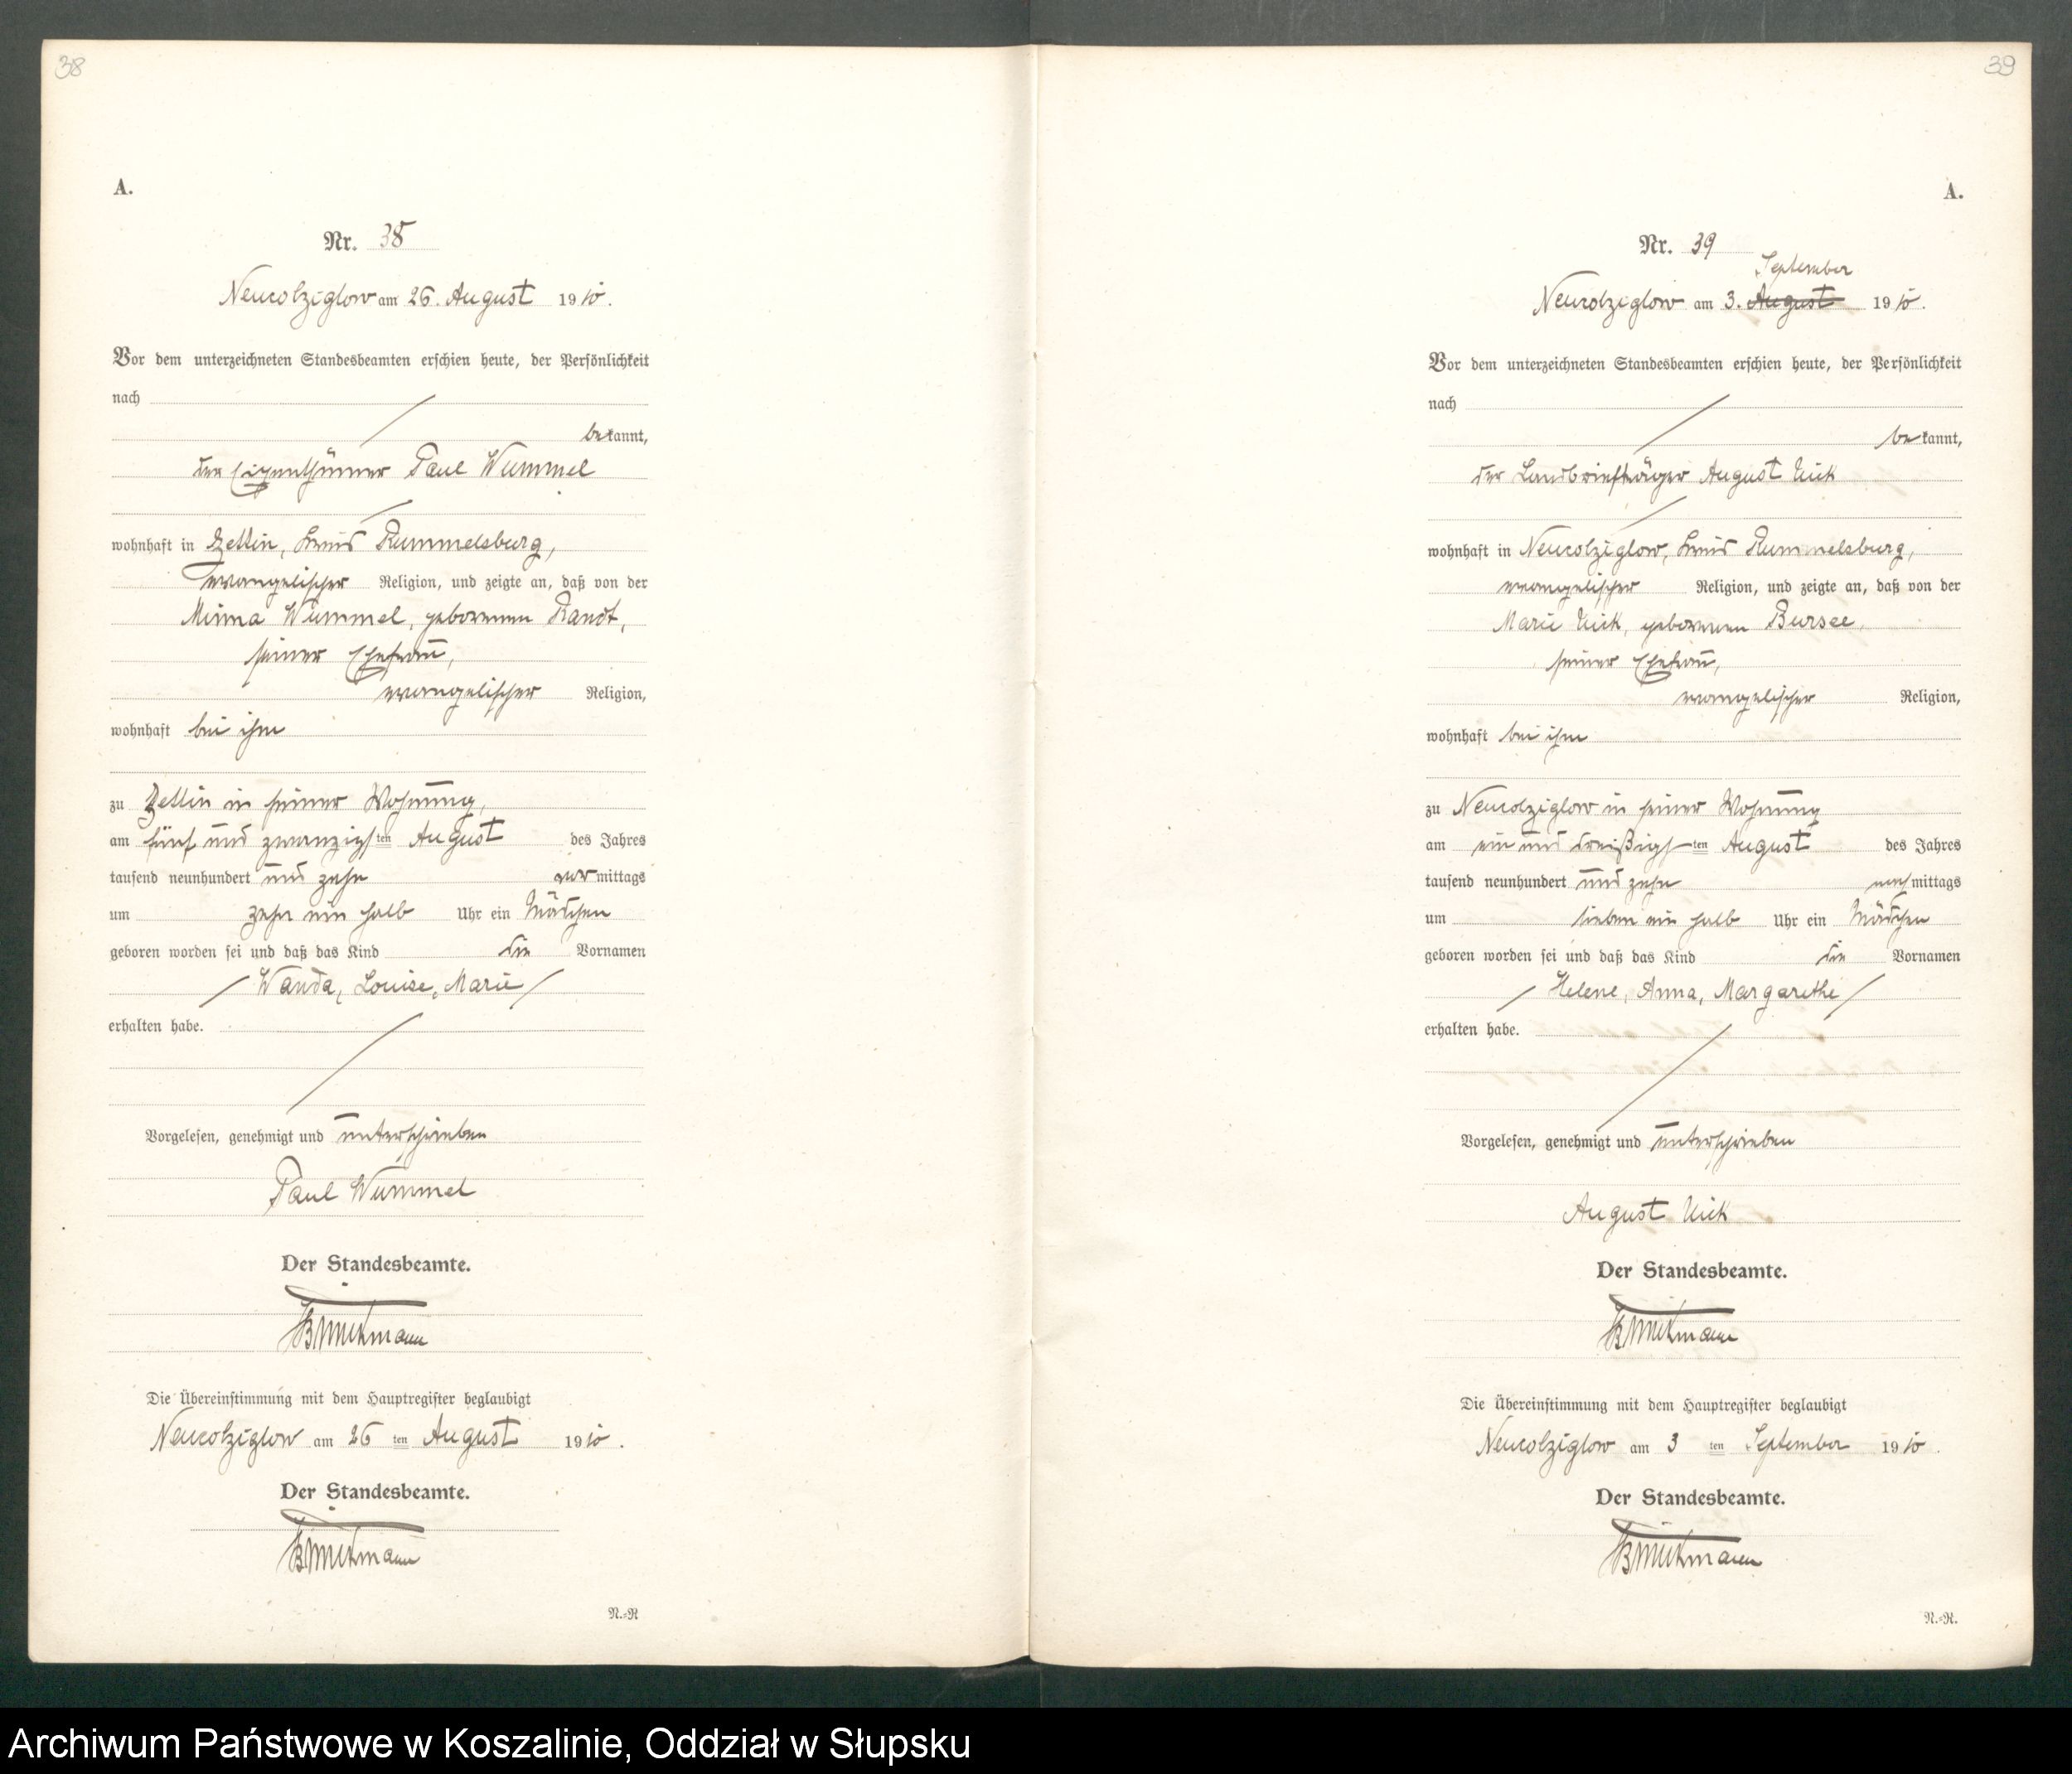 38
A.
Nr. 38
Neucolziglow am 26. August 1910.
Vor dem unterzeichneten Standesbeamten erschien heute, der Persönlichkeit
nach
bekannt,
der Eigenthümer Paul Wummel
wohnhaft in Zettin, Kreis Rummelsburg,
evangelischer Religion, und zeigte an, daß von der
Minna Wummel, geborenen Randt,
seiner Ehefrau,
evangelischer Religion,
wohnhaft bei ihm
zu Zettin in seiner Wohnung,
am fünf und zwanzigsten August des Jahres
tausend neunhundert und zehn vormittags
um zehn ein halb Uhr ein Mädchen
geboren worden sei und daß das Kind die Vornamen
Wanda, Louise, Marie
erhalten habe.
Vorgelesen, genehmigt und unterschrieben
Paul Wummel
Der Standesbeamte.
Die Übereinstimmung mit dem Hauptregister beglaubigt
Neucolziglow am 26 ten August 1910.
Der Standesbeamte.
N.=R
39
A.
Nr. 39
September
Neucolziglow am 3. August 1910.
Vor dem unterzeichneten Standesbeamten erschien heute, der Persönlichkeit
nach
bekannt,
der Landbriefträger August Kick
wohnhaft in Neucolziglow, Kreis Rummelsburg,
evangelischer Religion, und zeigte an, daß von der
Marie Kick, geborenen Bursee,
seiner Ehefrau,
evangelischer Religion,
wohnhaft bei ihm
zu Neucolziglow in seiner Wohnung
am ein und dreißigsten August des Jahres
tausend neunhundert und zehn nachmittags
um sieben ein halb Uhr ein Mädchen
geboren worden sei und daß das Kind die Vornamen
Helene, Anna, Margarethe
erhalten habe.
Vorgelesen, genehmigt und unterschrieben
August Kick
Der Standesbeamte.
Die Übereinstimmung mit dem Hauptregister beglaubigt
Neucolziglow am 3 ten September 1910.
Der Standesbeamte.
N.=R.
Archiwum Państwowe w Koszalinie, Oddział w Słupsku